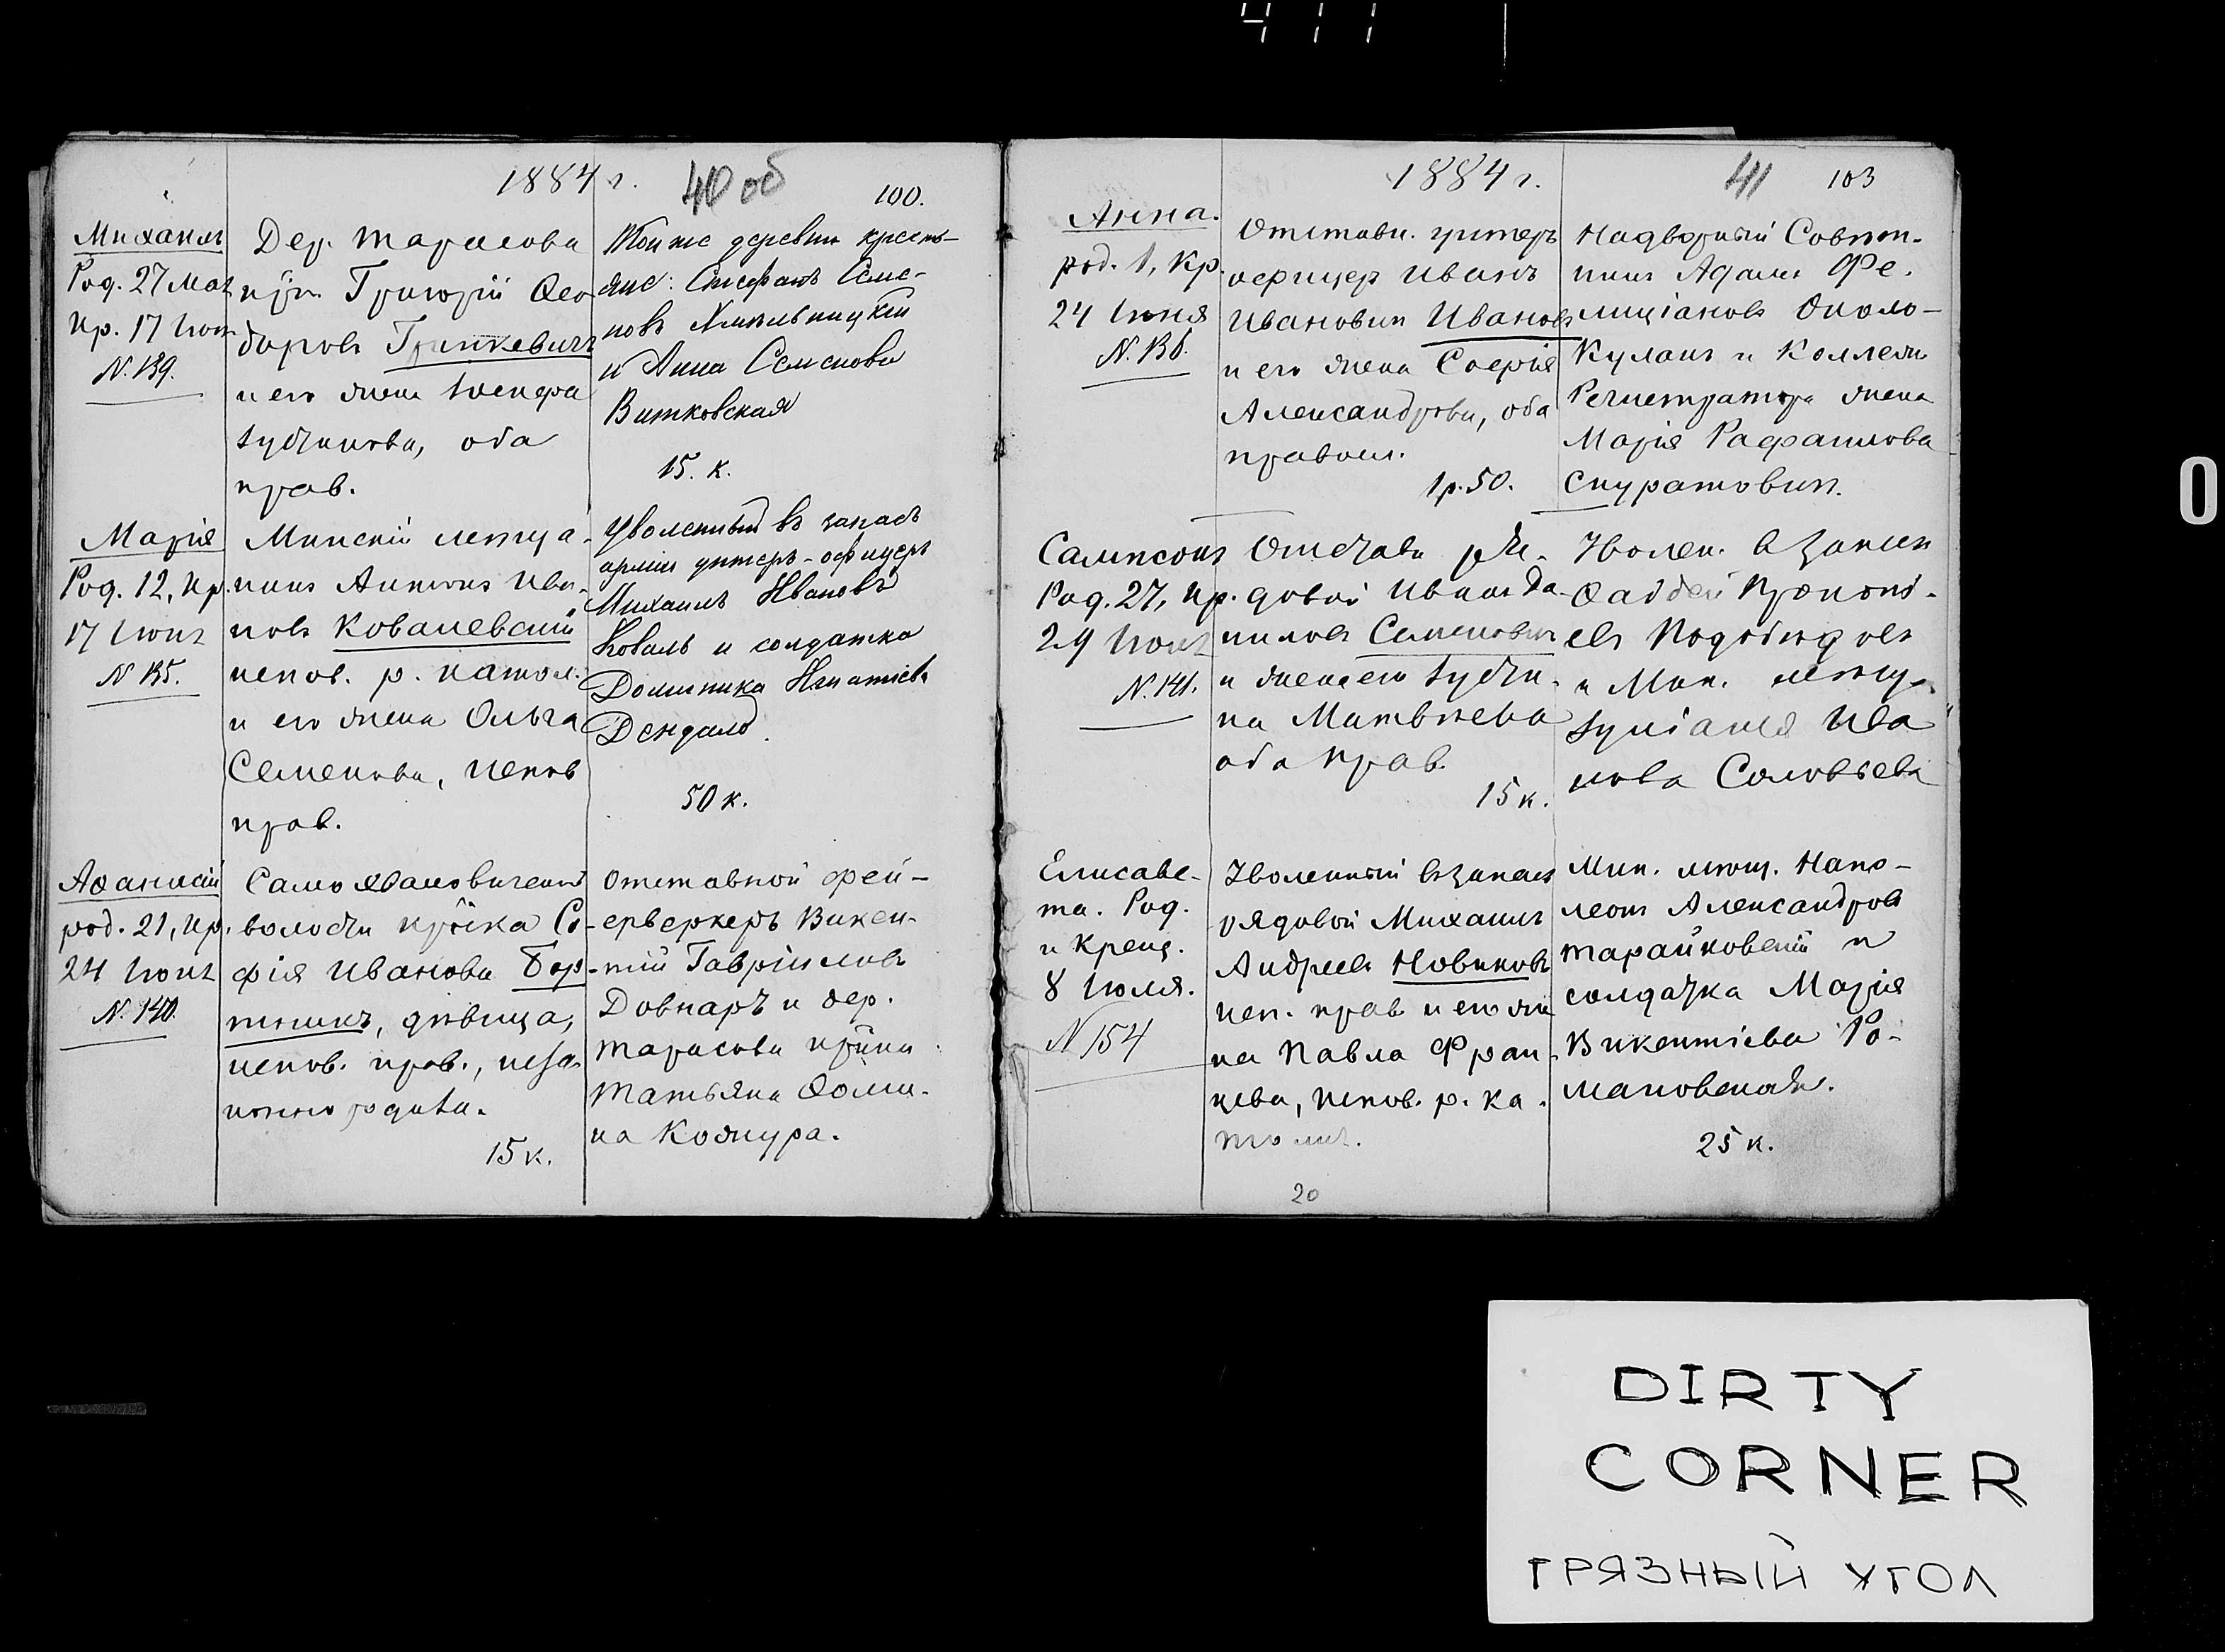 1884 г.
40 об
100.
Михаилъ
Род. 27 Мая
Кр. 17 Iюня
N. 139.
Дер. Тарасова
кр. Григорiй Ѳео-
доровъ Гринкевичъ
и его жена
оба
прав.
Той же деревни кресть-
яне: Стефанъ Семе-
новъ Хмельницкiй
и Анна Семенова
Витковская
15. к.
Марiя
Род. 12, кр.
17 Iюня
N 135.
Минскiй мѣща-
нинъ Антонъ Ива-
новъ Ковалевскiй
испов. р. катол.
и его жена Ольга
Семенова, испов
прав.
Уволенный въ запасъ
армiи унтеръ-офицеръ
Михаилъ Ивановъ
Коваль и солдатка
Доминика Игнатiева
50 к.
Аѳанасiй
род. 21, кр.
24 Iюня
N. 140.
Самохваловичской
волости кр-ка Со-
фiя Иванова Бор-
тникъ, дѣвица,
испов. прав., неза-
конно родила.
15 к.
Отставной фей-
ерверкеръ Викен-
тiй Гаврiиловъ
Довнаръ и дер.
Тарасова кр-ка
Татьяна Ѳоми-
на Кожура.
1884 г.
41
103
Анна.
род. 1, кр.
24 Iюня
N. 136.
Отставн. унтеръ
офицеръ Иванъ
Ивановичъ Ивановъ
и его жена Софiя
Александрова, оба
правосл.
1 р. 50.
Надворный Совѣт-
никъ Адамъ Фе-
лицiановъ Около-
Кулакъ и Коллеж.
Регистратора жена
Марiя Рафаилова
Скуратовичъ.
Сампсонъ
Род. 27, кр.
29 Iюня
N. 141.
Отставн. ря-
довой Иванъ Да-
ниловъ Семеновичъ
и жена его
Матвѣева
оба прав.
15 к.
Уволен. в запасъ
Ѳаддей
евъ
и Мин. мѣщ.
Iулiанiя Ива
нова Соловьева
Елисаве-
та. Род.
и крещ.
8 Iюля.
N 154
Уволенный въ запасъ
рядовой Михаилъ
Андреевъ Новиковъ
исп. прав. и его же
на Павла Фран-
цева, испов. р. ка-
толич.
20
Мин. мѣщ. Напо-
леонъ Александровъ
Тарайковскiй и
солдатка Марiя
Викентiева Ро-
мановская.
25 к.
DIRTY
CORNER
ГРЯЗНЫЙ УГОЛ